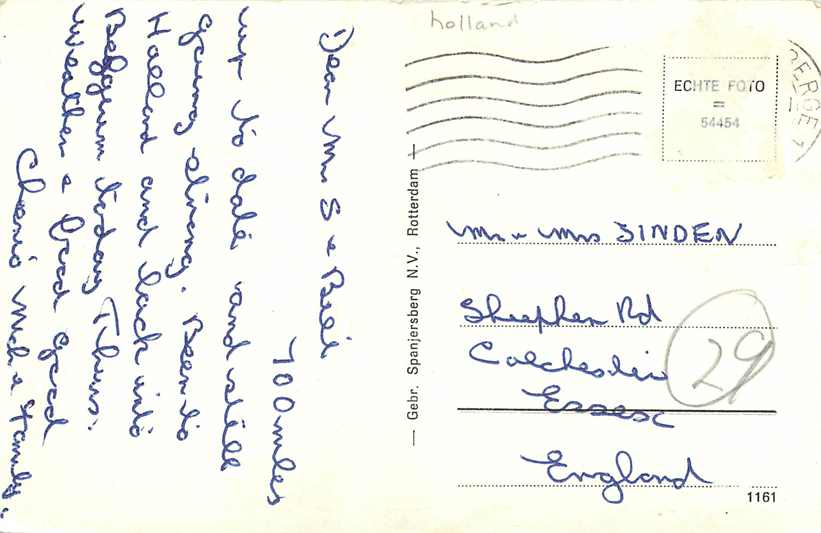 holland
Dear Mr S & Bill
700 miles
up to date and still
going strong. Been to
Holland and back into
Belgium today Thurs.
Weather & food good
Cheerio Mick & Family.
— Gebr. Spanjersberg N.V., Rotterdam —
ECHTE FOTO
=
54454
Mr & Mrs SINDEN
Sheephen Rd
Colchester
Essex
England
29
1161